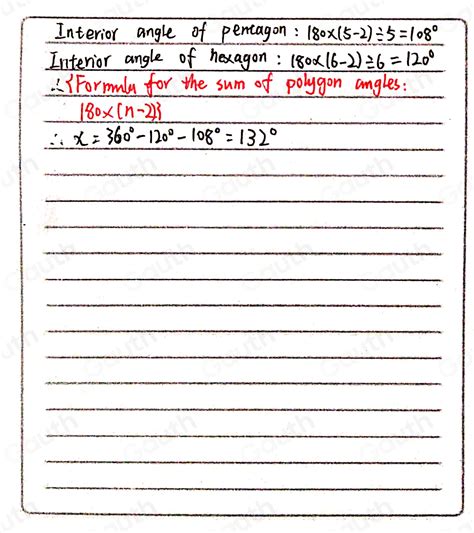 Interior angle of pentagon : 180×(5-2)÷5=108°
Interior angle of hexagon : 180×(6-2)÷6=120°
∴{Formula for the sum of polygon angles:
180×(n-2)}
∴ x = 360°-120°-108° = 132°